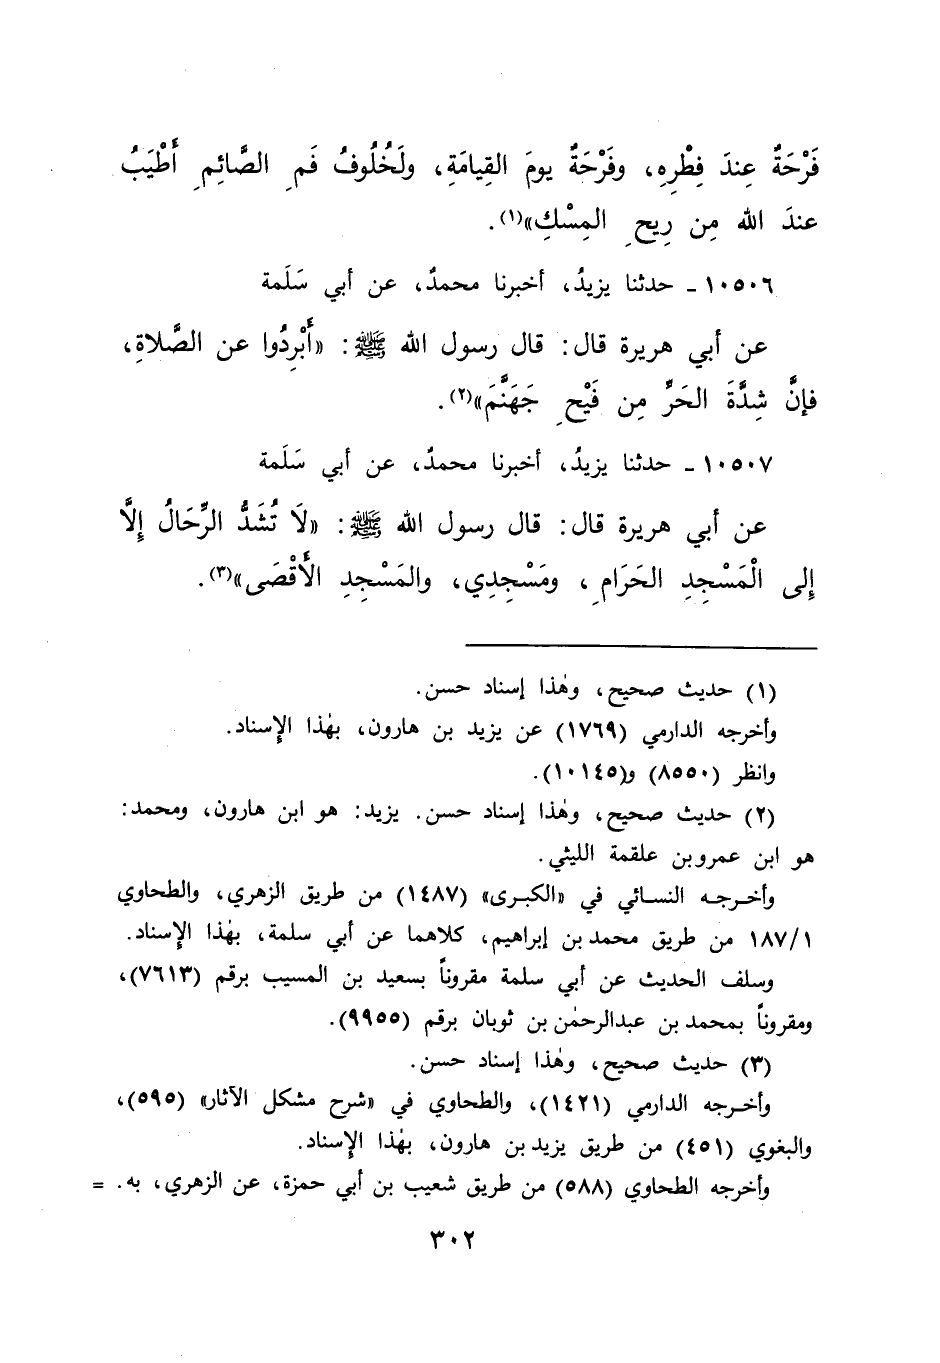 فَرْحَةٌ عِندَ فِطْرِهِ، وفَرْحَةٌ يومَ القِيامَةِ، ولَخُلُوفُ فَمِ الصَّائِمِ أَطْيَبُ
عندَ الله مِن رِيحِ المِسْكِ»(١).
١٠٥٠٦ ـ حدثنا يزيدُ، أخبرنا محمدٌ، عن أبي سَلَمة
عن أبي هريرة قال: قال رسول الله ﷺ: «أَبْرِدُوا عن الصَّلاةِ،
فإنَّ شِدَّةَ الحَرِّ مِن فَيْحِ جَهَنَّمَ»(٢).
١٠٥٠٧ ـ حدثنا يزيدُ، أخبرنا محمدٌ، عن أبي سَلَمة
عن أبي هريرة قال: قال رسول الله ﷺ: «لَا تُشَدُّ الرِّحَالُ إلَّا
إلى الْمَسْجِدِ الحَرَامِ، ومَسْجِدِي، والمَسْجِدِ الأَقْصَى»(٣).
(١) حديث صحيح، وهٰذا إسناد حسن.
وأخرجه الدارمي (١٧٦٩) عن يزيد بن هارون، بهٰذا الإسناد.
وانظر (٨٥٥٠) و(١٠١٤٥).
(٢) حديث صحيح، وهٰذا إسناد حسن. يزيد: هو ابن هارون، ومحمد:
هو ابن عمرو بن علقمة الليثي.
وأخرجه النسائي في «الكبرى» (١٤٨٧) من طريق الزهري، والطحاوي
١٨٧/١ من طريق محمد بن إبراهيم، كلاهما عن أبي سلمة، بهٰذا الإسناد.
وسلف الحديث عن أبي سلمة مقروناً بسعيد بن المسيب برقم (٧٦١٣)،
ومقروناً بمحمد بن عبدالرحمٰن بن ثوبان برقم (٩٩٥٥).
(٣) حديث صحيح، وهٰذا إسناد حسن.
وأخرجه الدارمي (١٤٢١)، والطحاوي في «شرح مشكل الآثار» (٥٩٥)،
والبغوي (٤٥١) من طريق يزيد بن هارون، بهٰذا الإسناد.
وأخرجه الطحاوي (٥٨٨) من طريق شعيب بن أبي حمزة، عن الزهري، به. =
٣٠٢